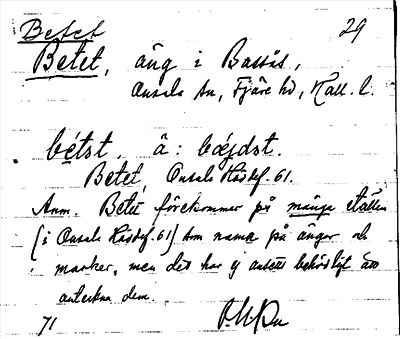 Betet 29
Betet, äng i Bassås,
Onsala sn, Fjäre hd, Hall. l.
bétst, ä: bǿjdst.
Betet, Onsala Häsbef. 61.
Anm. Betet förekommer på många ställen
(i Onsala Häsbef. 61) som namn på ängar och
marker, men det har ej ansetts behövligt att
anteckna dem.
71